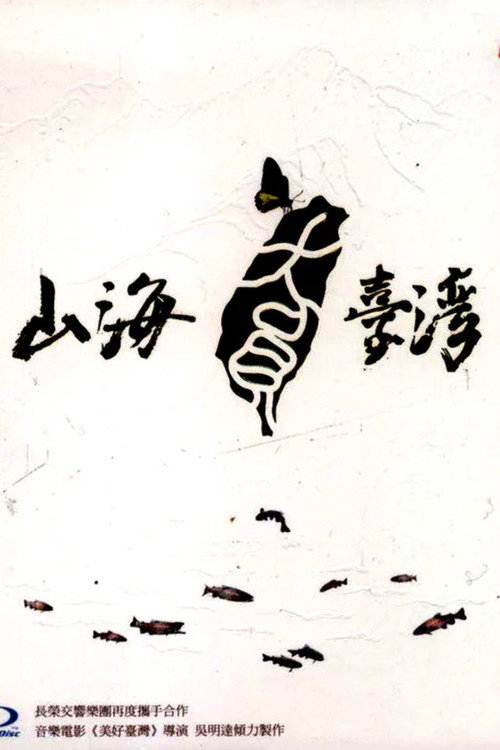 山海 臺灣
長榮交響樂團再度攜手合作
Disc 音樂電影《美好臺灣》導演 吳明達傾力製作